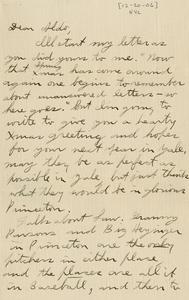 [12-20-06]
Dear Aldo,
I'll start my letter as
you did yours to me. "Now
that Xmas has come around
again one begins to remember
about unanswered letters – so
here goes." But I'm going to
write to give you a hearty
Xmas greeting and hopes
for your next year in Yale,
may they be as perfect as
possible in Yale but just think
what they would be in glorious
Princeton.
Talk about fun.
Parsons and Big Heyniger
in Princeton are the only
pitchers in either place
and the places are all it
in Baseball, and then to